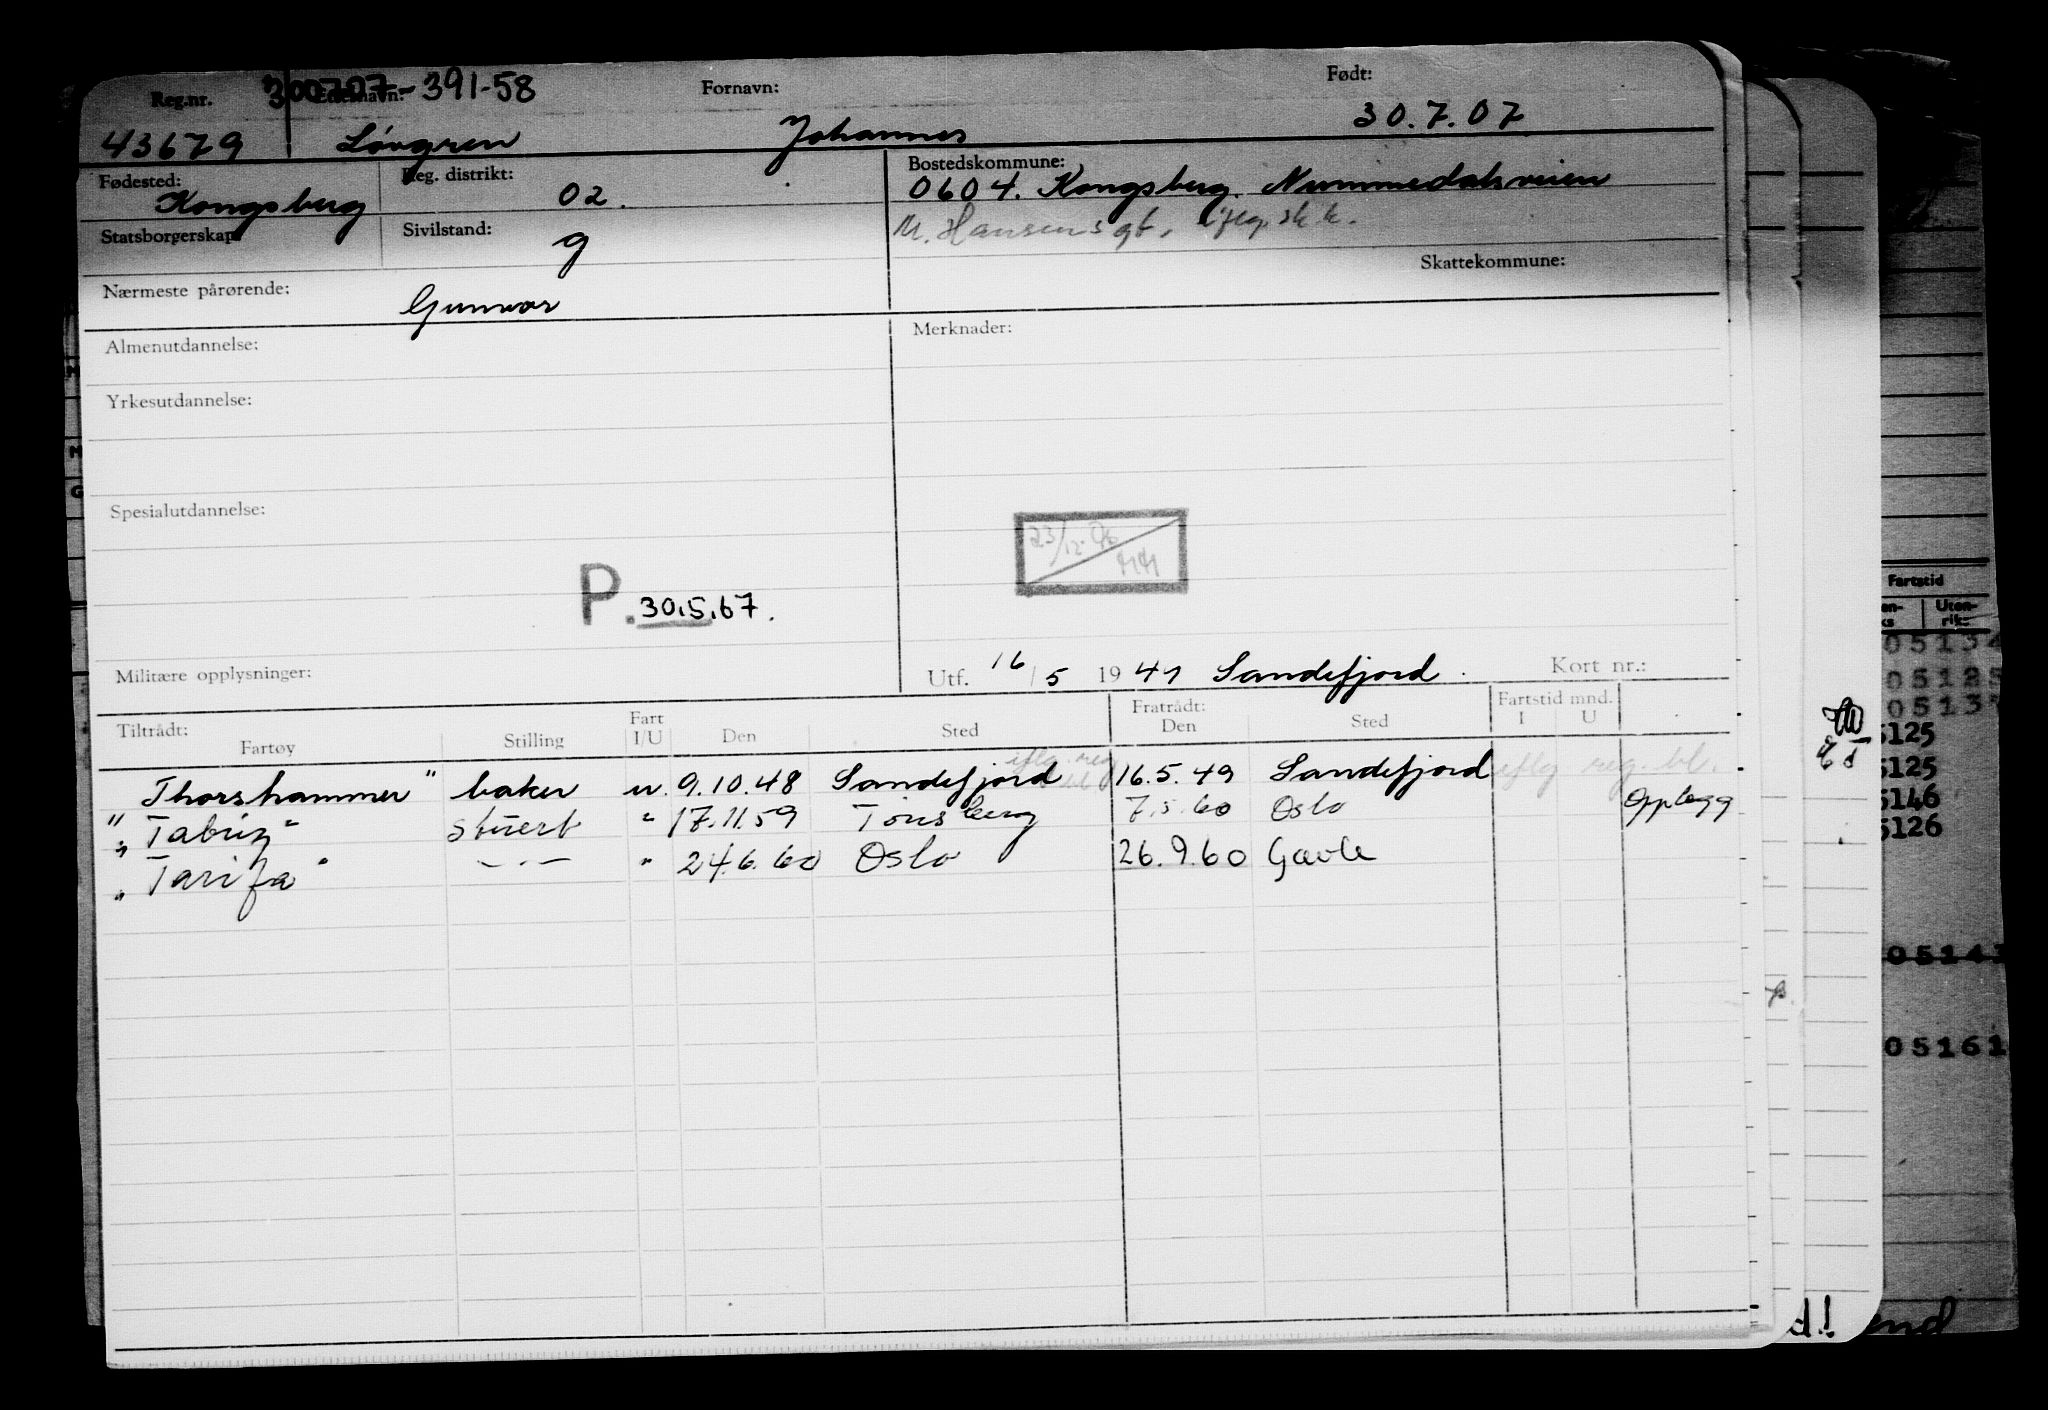 300707-391-58
Reg.nr. Etternavn: Fornavn: Født:
43679 Løvgren Johannes 30.7.07
Fødested: Reg. distrikt: Bostedskommune:
Kongsberg 02. 0604. Kongsberg. Nummedalsveien
Statsborgerskap: Sivilstand: M. Hansensgt,
g
Skattekommune:
Nærmeste pårørende:
Gunvor
Almenutdannelse: Merknader:
Yrkesutdannelse:
Spesialutdannelse:
23/12-96
HH
P. 30.5.67.
Militære opplysninger: Utf. 16/5 1949 Sandefjord. Kort nr.:
Tiltrådt: Fratrådt: Fartstid mnd.
Fartøy Stilling Fart I/U Den Sted Den Sted I U
Thorshammer" baker u. 9.10.48 Sandefjord 16.5.49 Sandefjord iflg reg. bl.
" Tabriz" stuert " 17.11.59 Tønsberg 7.5.60 Oslo Opplegg
" Tarifa" — " — " 24.6.60 Oslo 26.9.60 Gavle
Fartstid
Uten-
riks
05134
05125
05137
5125
5125
5146
5126
05143
05161
d!
end